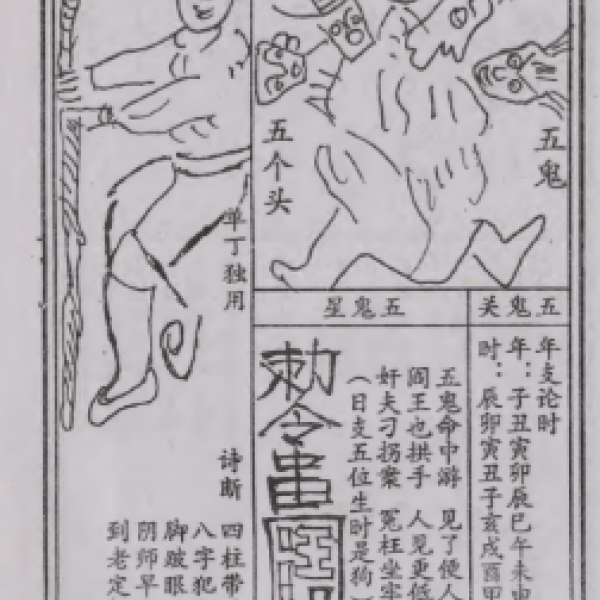 五鬼
五个头
五鬼关
年支论时
年：子丑寅卯辰巳午未申
时：辰卯寅丑子亥戌酉
五鬼星
五鬼命中游 见了便人
阎王也拱手 人见更低
奸夫刁拐案 冤枉坐牢
（日支五位生时是狗
勅令
单丁独用
诗断
四柱带
八字犯
脚跛眼
阴师早
到老定